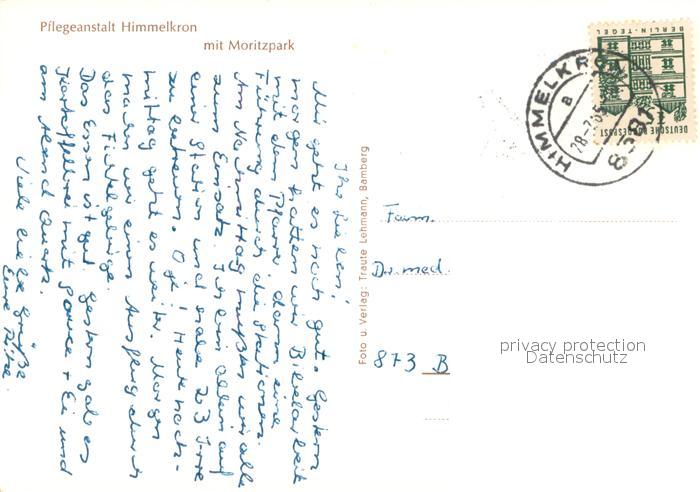 Pflegeanstalt Himmelkron
mit Moritzpark
Ihr Lieben!
Mir geht es noch gut. Gestern
morgen hatten wir Bibelarbeit
mit dem Pfarrer, dann eine
Führung durch die Stationen.
Am Nachmittag mußten wir alle
zum Einsatz. Ich bin allein auf
einer Station und habe 23 Irre
zu betreuen. Oje! Heute nach-
mittag geht es weiter. Morgen
machen wir einen Ausflug durch
das Fichtelgebirge.
Das Essen ist gut. Gestern gab es
Kartoffelbrei mit Sauce + Ei und
am Abend Quark.
Viele liebe Grüße
Eure
Foto u. Verlag: Traute Lehmann, Bamberg
Fam.
Dr. med.
873 B
HIMMELKRON
a
8581
DEUTSCHE BUNDESPOST
BERLIN-TEGEL
privacy protection
Datenschutz